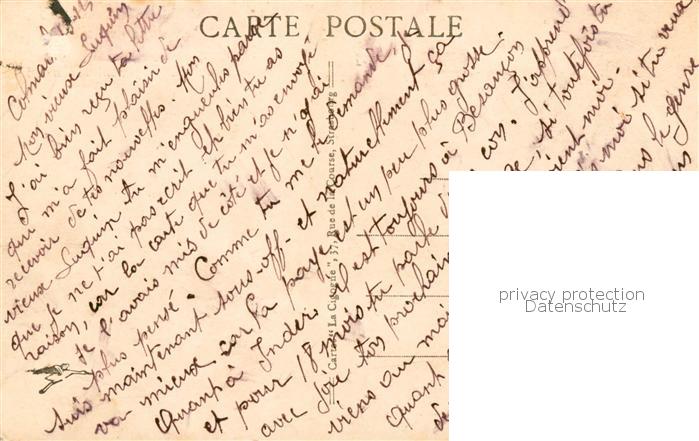 CARTE POSTALE
Colmar, le
Mon vieux Luquin
J'ai bien reçu ta lettre
qui m'a fait plaisir de
recevoir de tes nouvelles. Mon
vieux Luquin tu m'engueules parce
que je ne t'ai pas écrit eh bien tu as
raison, car la carte que tu m'as envoyé
je l'avais mis de côté et je n'y ai
plus pensé. Comme tu me le demande, je
suis maintenant sous-off- et naturellement ça
va mieux car la paye est un peu plus grosse.
Quant à Inder il est toujours à Besançon
et pour 18 mois tu parle d'un con. J'apprend
avec joie ton prochain si toutefois tu
viens au moi.
Quant moi si tu veux
le genre
Cartes "La Cigogne", 37, Rue de la Course, Strasbourg
privacy protection
Datenschutz